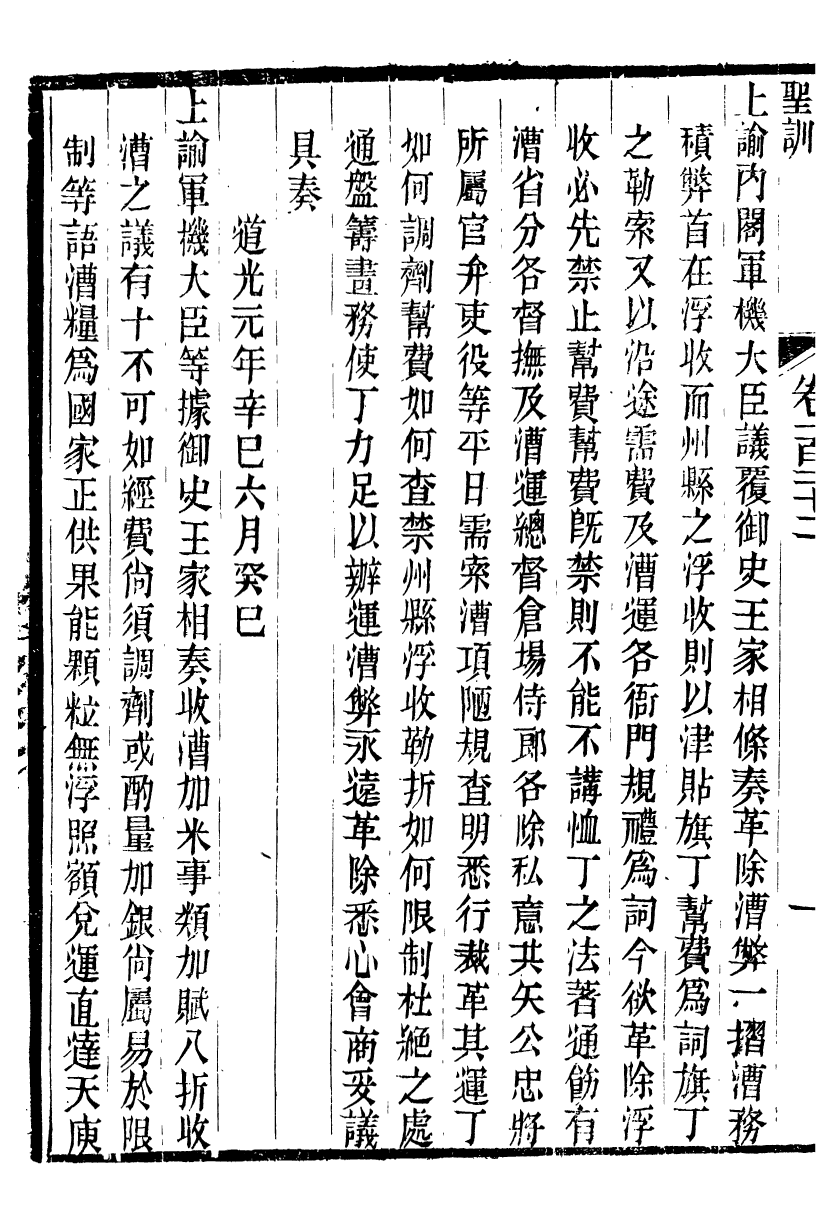 聖訓 卷一百三十二 一
上諭內閣軍機大臣議覆御史王家相條奏革除漕弊一摺漕務
積弊首在浮收而州縣之浮收則以津貼旗丁幫費爲詞旗丁
之勒索又以沿途需費及漕運各衙門規禮爲詞今欲革除浮
收必先禁止幫費幫費既禁則不能不講恤丁之法著通飭有
漕省分各督撫及漕運總督倉場侍郎各除私意共矢公忠將
所屬官弁吏役等平日需索漕項陋規查明悉行裁革其運丁
如何調劑幫費如何查禁州縣浮收勒折如何限制杜絕之處
通盤籌畫務使丁力足以辦運漕弊永遠革除悉心會商妥議
具奏
道光元年辛巳六月癸巳
上諭軍機大臣等據御史王家相奏收漕加米事類加賦八折收
漕之議有十不可如經費尙須調劑或酌量加銀尙屬易於限
制等語漕糧爲國家正供果能顆粒無浮照額兌運直達天庾